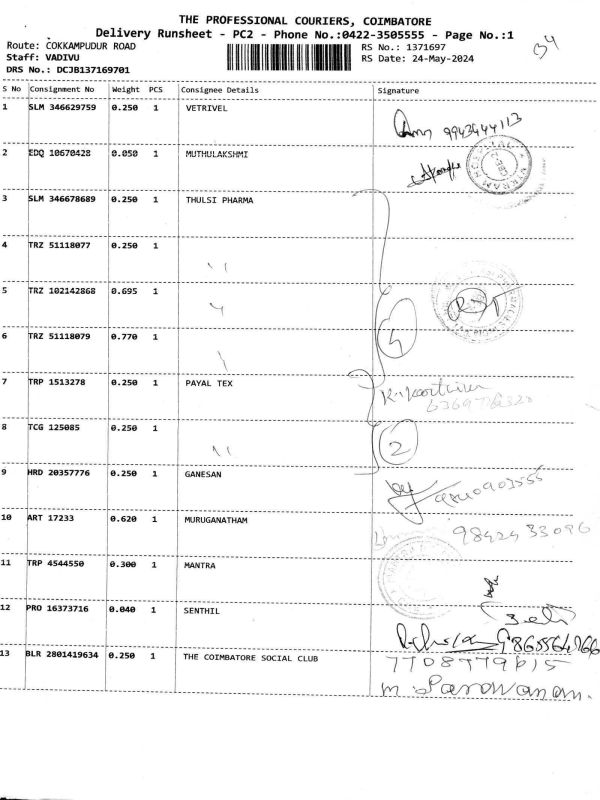 THE PROFESSIONAL COURIERS, COIMBATORE
Delivery Runsheet - PC2 - Phone No.:0422-3505555 - Page No.:1
Route: COKKAMPUDUR ROAD
RS No.: 1371697
34
Staff: VADIVU
RS Date: 24-May-2024
DRS No.: DCJB137169701
S No Consignment No Weight PCS Consignee Details Signature
1 SLM 346629759 0.250 1 VETRIVEL
9943444113
2 EDQ 10670428 0.050 1 MUTHULAKSHMI
3 SLM 346678689 0.250 1 THULSI PHARMA
4 TRZ 51118077 0.250 1 "
5 TRZ 102142868 0.695 1 "
6 TRZ 51118079 0.770 1 "
4
7 TRP 1513278 0.250 1 PAYAL TEX
8 TCG 125085 0.250 1 "
2
9 HRD 20357776 0.250 1 GANESAN
10 ART 17233 0.620 1 MURUGANATHAM
98424 33096
11 TRP 4544550 0.300 1 MANTRA
12 PRO 16373716 0.040 1 SENTHIL
13 BLR 2801419634 0.250 1 THE COIMBATORE SOCIAL CLUB
7708779615
m. Saravanan.